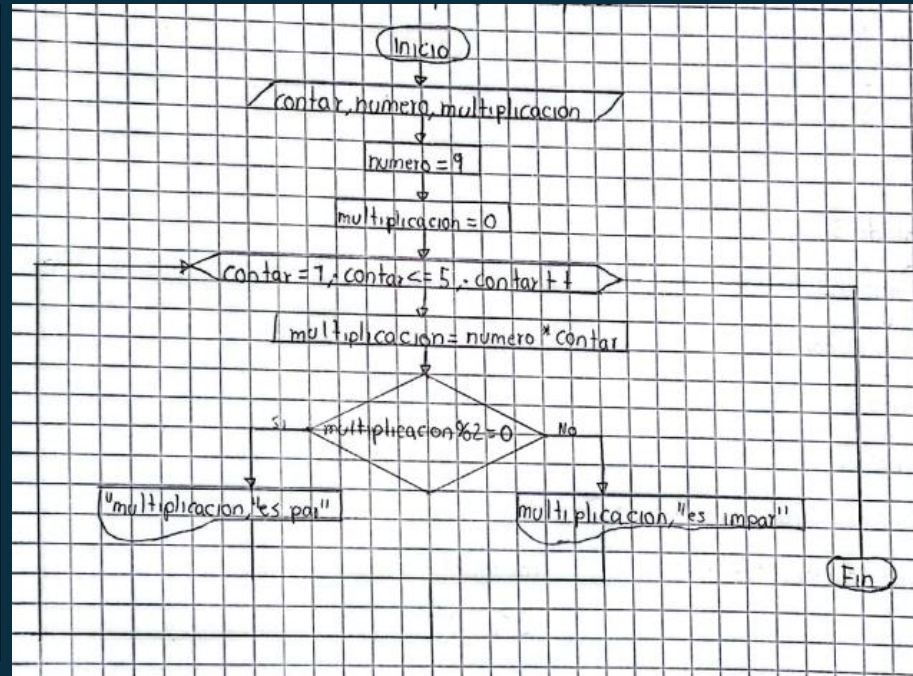 Inicio
contar, numero, multiplicacion
numero = 9
multiplicacion = 0
contar = 1; contar <= 5; contar ++
multiplicacion = numero * contar
multiplicacion %2 = 0
Si
No
"multiplicacion, "es par"
multiplicacion, "es impar"
Fin